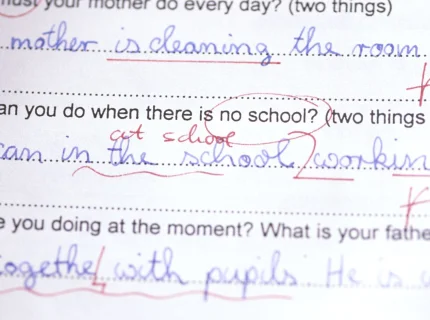 must your mother do every day? (two things)
mother is cleaning the room.
an you do when there is no school? (two things
at school
can in the school workin
e you doing at the moment? What is your fathe
ogethe with pupils He is